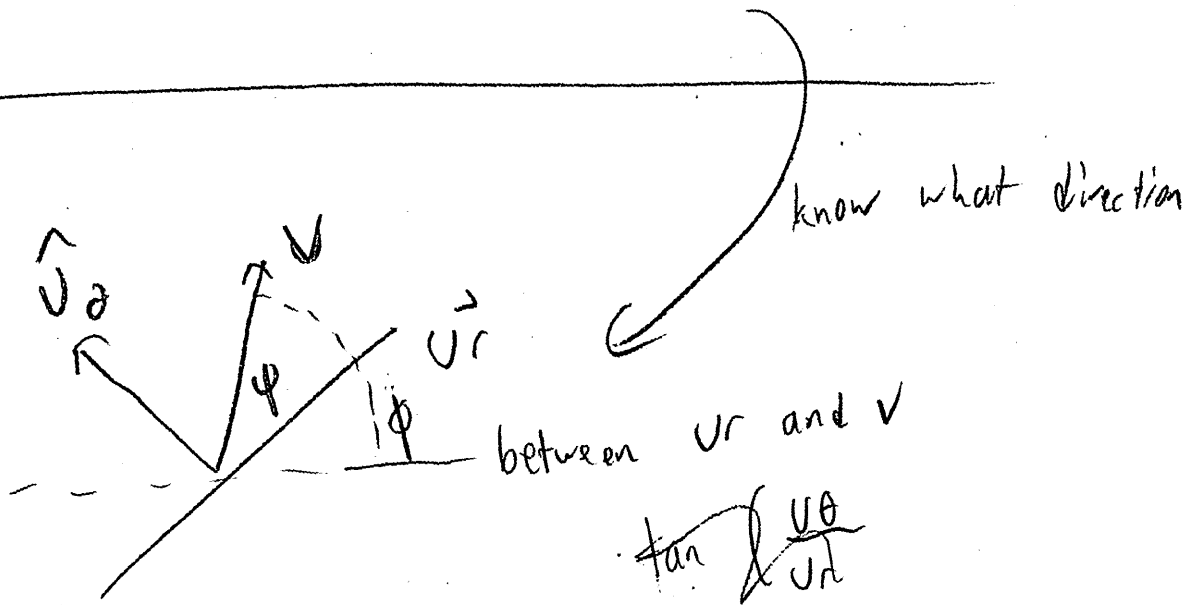 know what direction
V
Û∂
U⃗r
ψ
ϕ
between Ur and V
tan Uθ/Ur